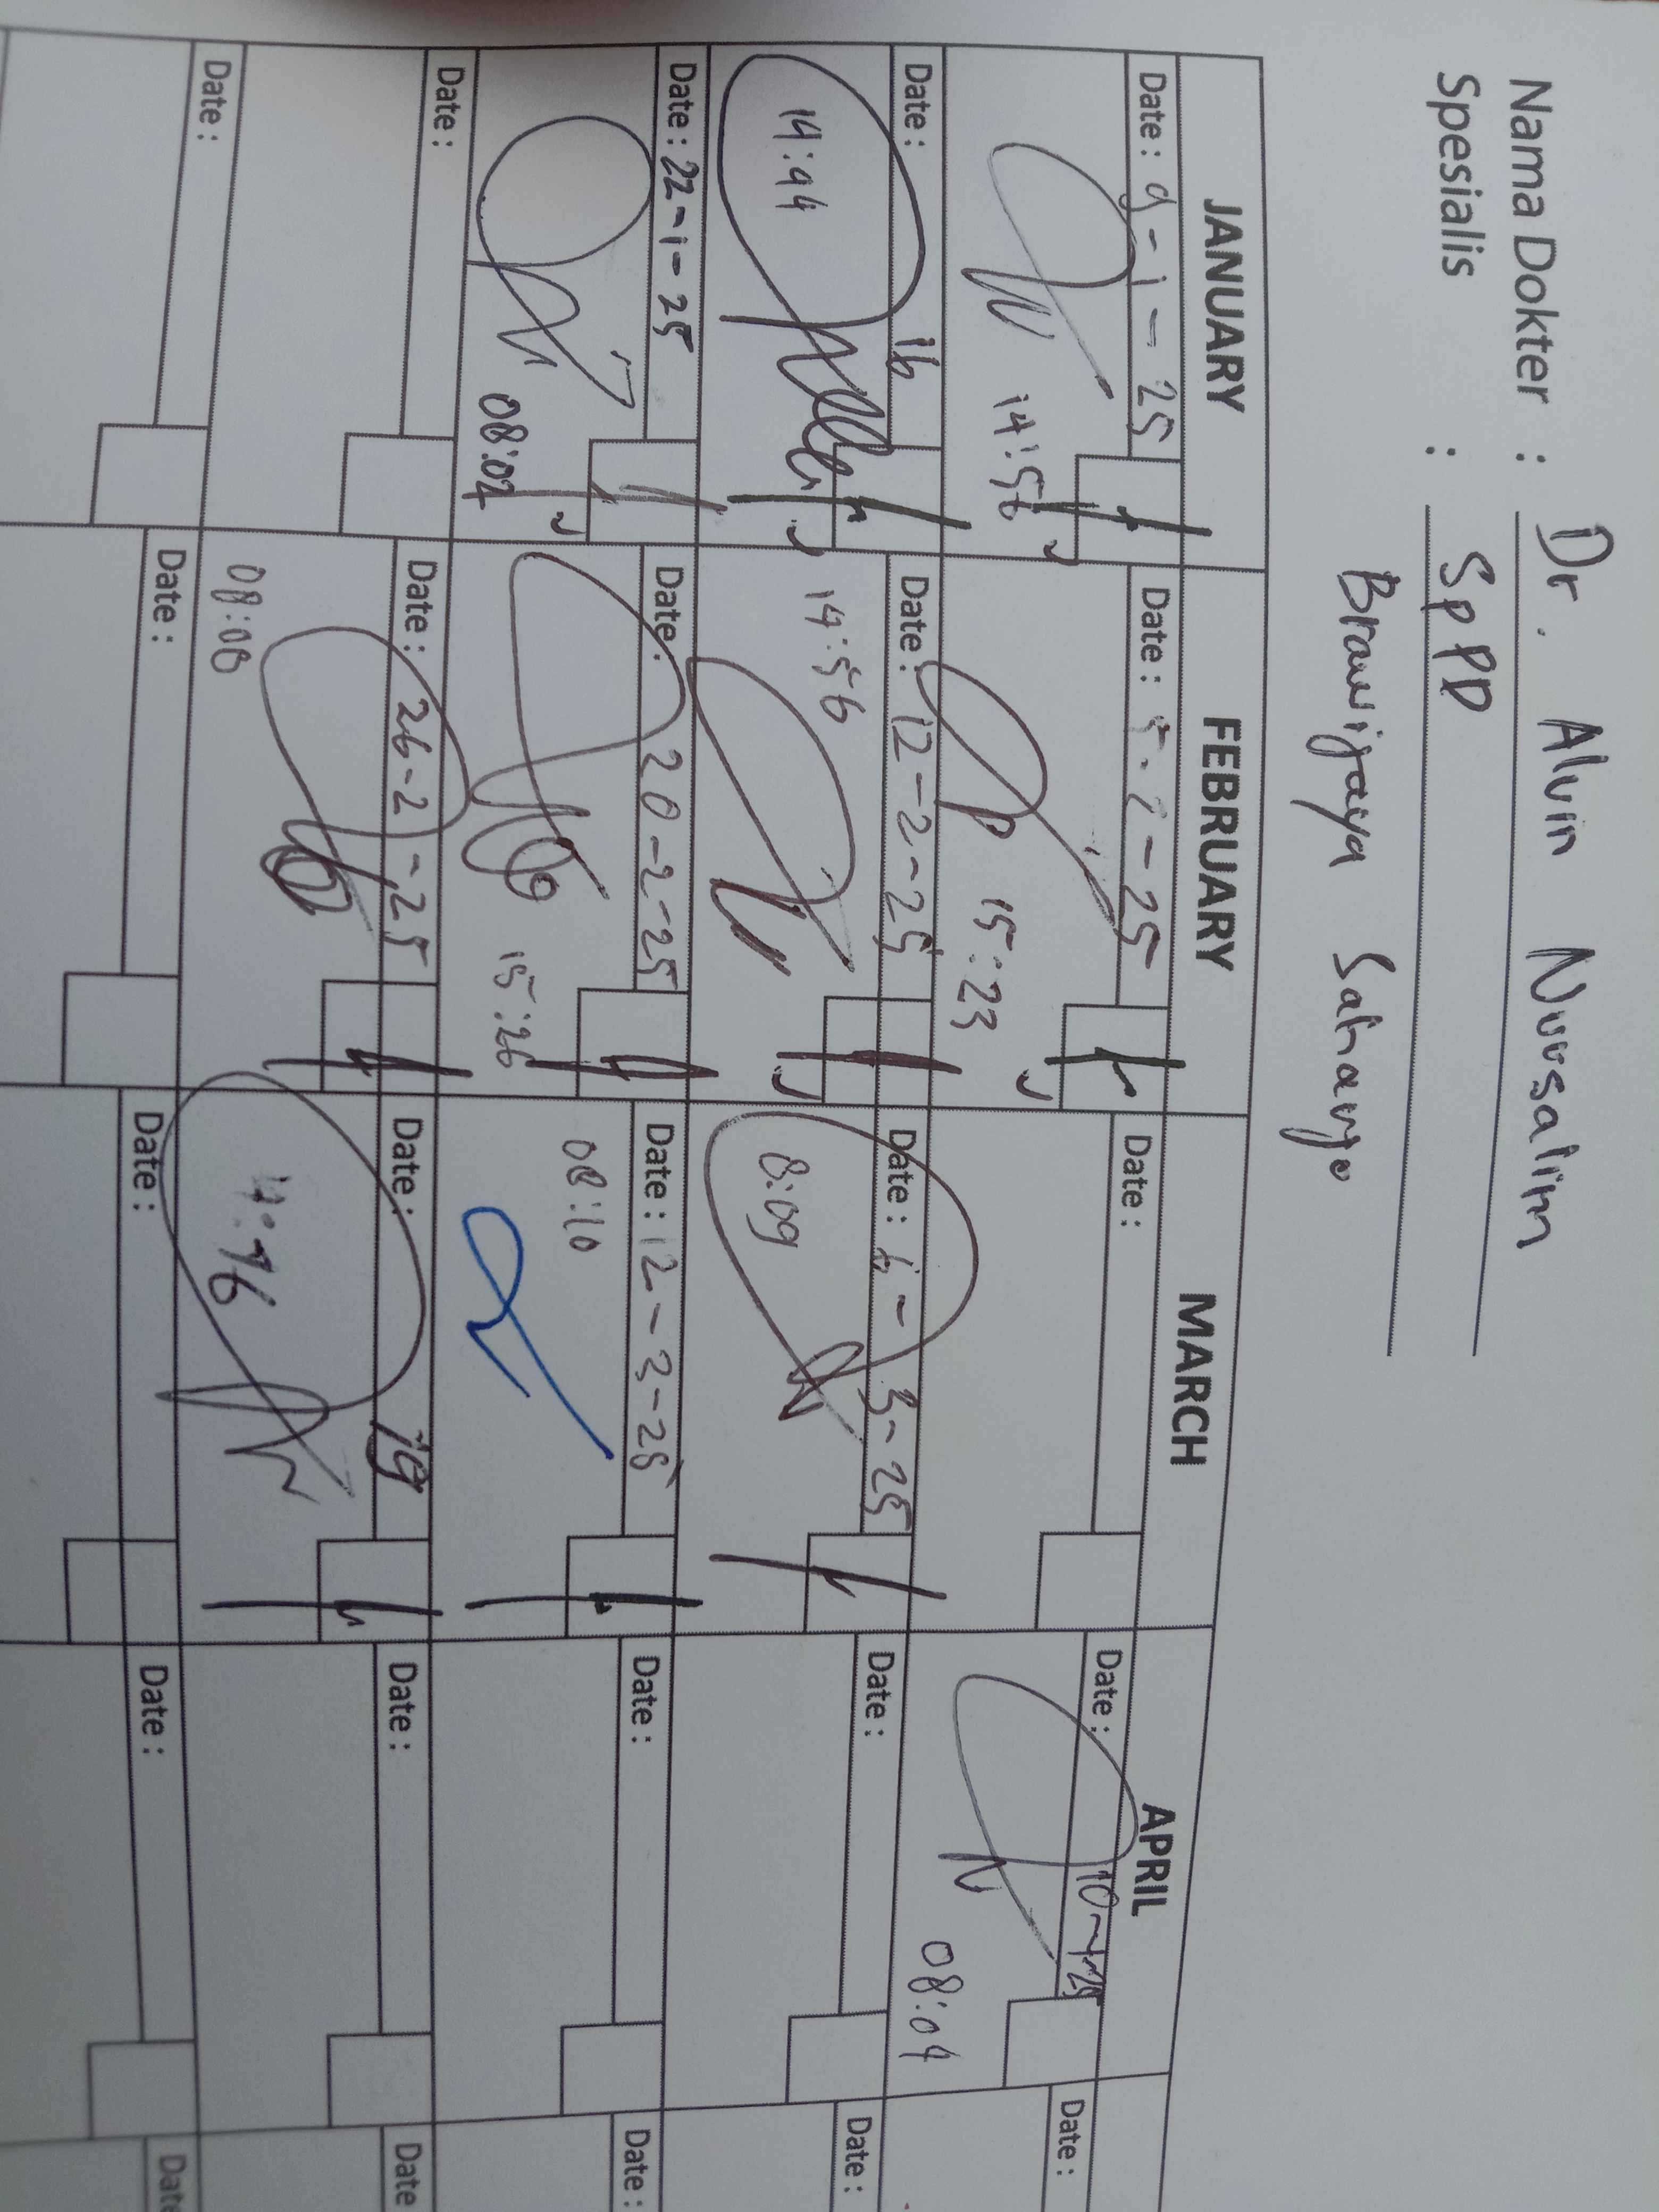 Nama Dokter : Dr. Alvin Nursalim
Spesialis : SpPD
Brawijaya Saharjo
JANUARY FEBRUARY MARCH APRIL
Date : 9-1-25
14:56
Date : 5-2-25
15:23
Date :
Date : 10-4-25
08:04
Date :
Date : 16
14:44
Date : 12-2-25
14:56
Date : 6-3-25
8:09
Date :
Date :
Date : 22-1-25
08:02
Date : 20-2-25
15:26
Date : 12-3-25
08:10
Date :
Date :
Date :
Date : 26-2-25
08:08
Date : 19
Date :
Date
Date :
Date :
Date :
Date :
Date